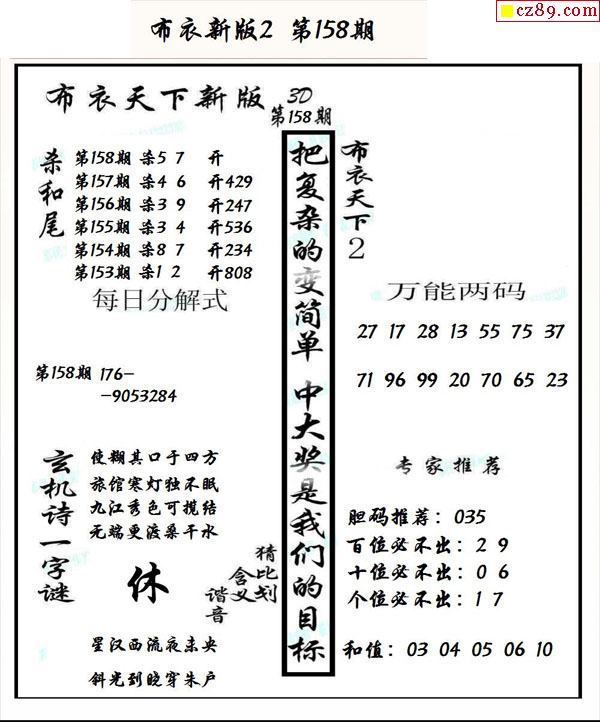 cz89.com
布衣新版2 第158期
布衣天下新版 3D
第158期
杀和尾
第158期 杀5 7 开
第157期 杀4 6 开429
第156期 杀3 9 开247
第155期 杀3 4 开536
第154期 杀8 7 开234
第153期 杀1 2 开808
每日分解式
第158期 176-
-9053284
玄机诗一字谜
使糊其口于四方
旅馆寒灯独不眠
九江秀色可揽结
无端更渡桑干水
休
猜比划
含义
谐音
星汉西流夜未央
斜光到晓穿朱户
把复杂的变简单 中大奖是我们的目标
布衣天下2
万能两码
27 17 28 13 55 75 37
71 96 99 20 70 65 23
专家推荐
胆码推荐：035
百位必不出：2 9
十位必不出：0 6
个位必不出：1 7
和值：03 04 05 06 10